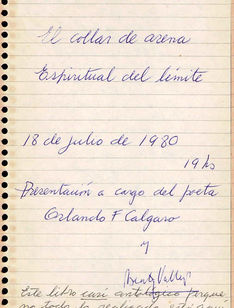 El collar de arena
Espiritual del límite
18 de julio de 1980
19 hs
Presentación a cargo del poeta
Orlando F Calgaro
y
Este libro casi antológico porque
no todo lo